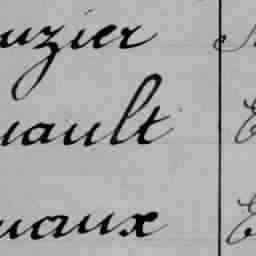 uzier
uault
uaux